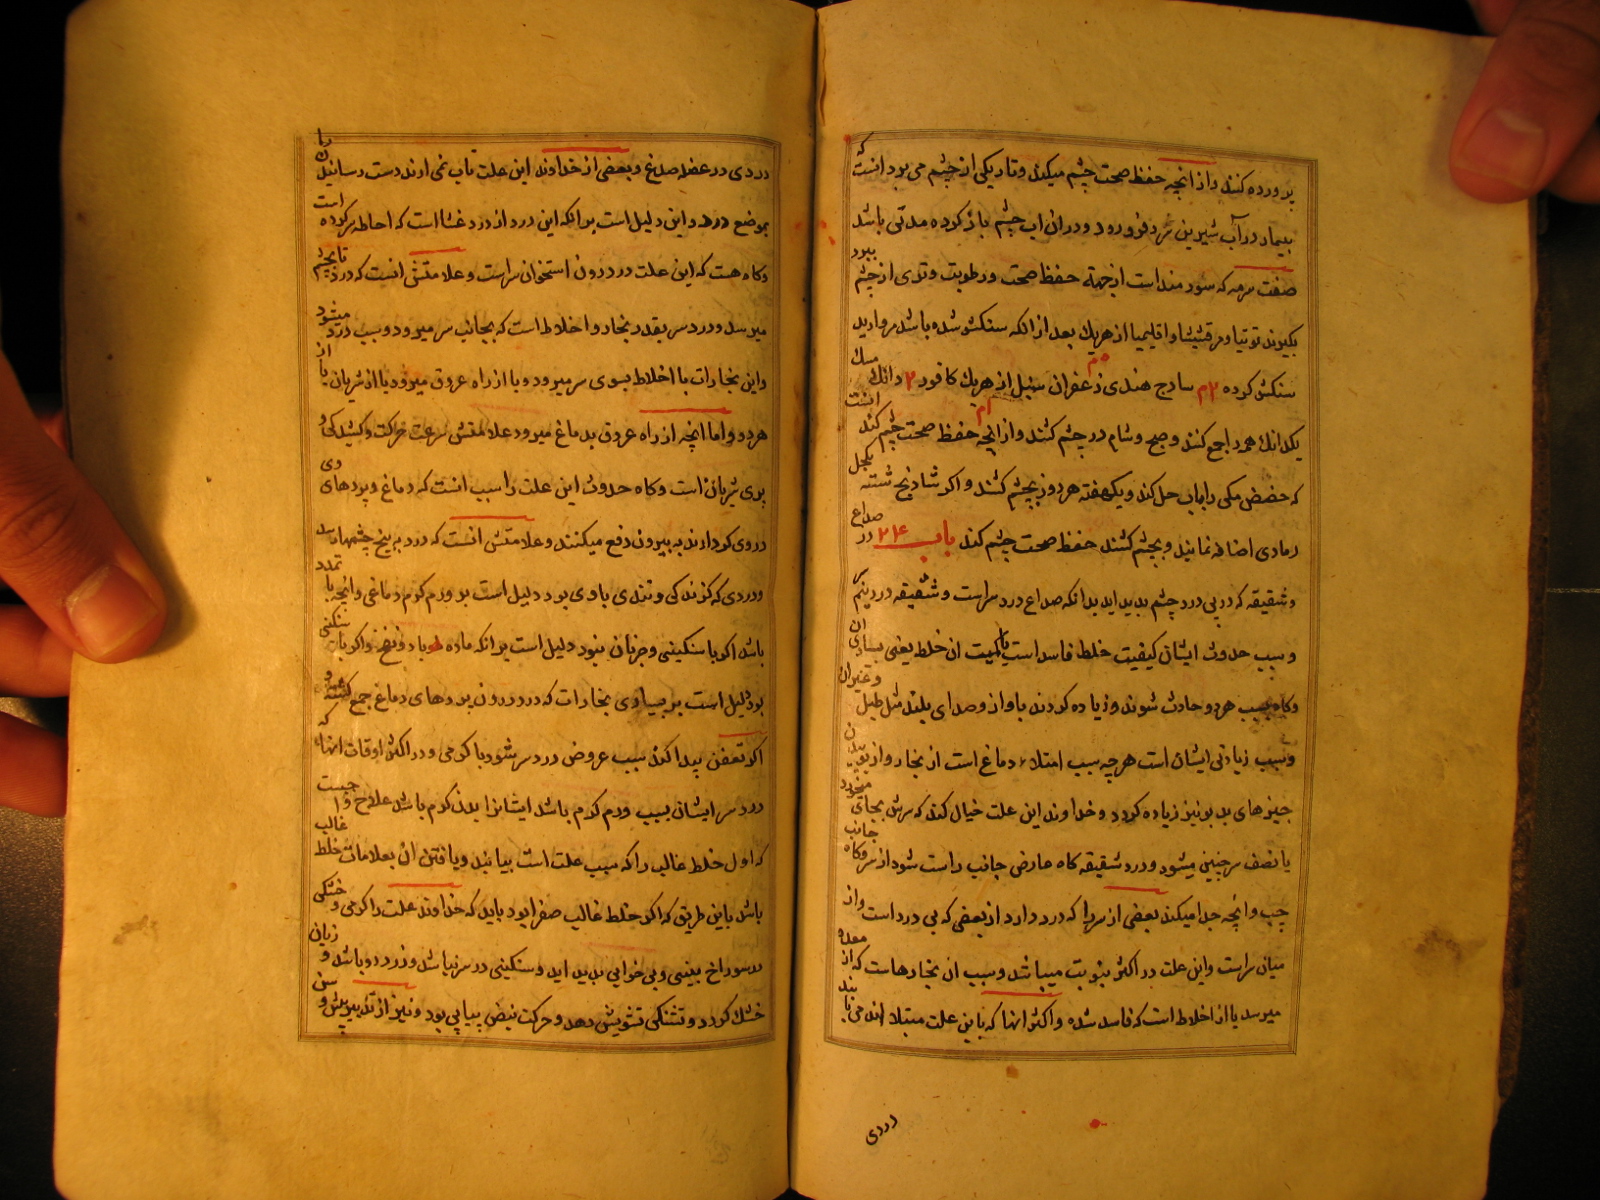 پرورده کنند و از انچه حفظ صحت چشم میکند و تاریکی از چشم می برد انست که
بیمار در آب شیرین سرد فرو رود و در ان اب چشم باز کرده مدتی باشد
صفت سرمه که سودمند است از جهة حفظ صحت و رطوبت و تری از چشم ببرد
بکیرند توتیا و مرقشیشا و اقلیمیا از هریک بعد از انکه سنکشو شده باشد مروارید
سنکشو کرده ۳م سادج هندی زعفران سنبل از هریک ۵م کافور ۲ دانک مسک
یکدانک همه را جمع کنند و صبح و شام در چشم کنند و از انچه حفظ صحت چشم کند انست
که حضض مکی را بآب حل کند و یکهفته هر روز بچشم کشند و اکر شادنج شسته
رمادی اضافه نمایند و بچشم کشند حفظ صحت چشم کند باب ۲۴ در صداع
و شقیقه که در پی درد چشم پدید اید بدانکه صداع درد سر است و شقیقه درد نیم سر
و سبب حدوث ایشان کیفیت خلط فاسد است یا کمیت ان خلط یعنی بسیاری ان
و کاه بسبب هر دو حادث شوند و زیاده کردند باواز و صدای بلند مثل طبل و غیر ان
و سبب زیادتی ایشان است هر چه سبب امتلاء دماغ است از بخار و از بوییدن
چیزهای بد بو نیز زیاده کردد و خداوند این علت خیال کند که سرش بجای
یا نصف سر چنین میشود و درد شقیقه کاه عارض جانب راست شود از سر و کاه جانب
چپ و انچه جدا میکند بعضی از سر را که درد دارد از بعضی که بی درد است و از
میان سر است و این علت در اکثر بنوبت میباشد و سبب ان بخارهاست که از معده
میرسد یا از اخلاط است که فاسد شده و اکثر انها که باین علت مبتلا اند می یابند
دردی
دردی در عضله صدغ و بعضی از خداوند این علت تاب نمی اورند دست رسانیدن را
بموضع درد و این دلیل است بر انکه این درد از درد غشا است که احاطه سر کرده است
و کاه هست که این علت در درون استخوان سر است و علامتش انست که درد تا بچشم
میرسد و درد سر بقدر بخار و اخلاط است که بجانب سر میرود و سبب درد میشود
و این بخارات با اخلاط بسوی سر میرود و یا از راه عروق میرود یا از شریان یا از
هر دو و اما انچه از راه عروق بدماغ میرود علامتش سرعت حرکت و کشیدکی و
پری شریان است و کاه حدوث این علت را سبب انست که دماغ و پردهای
در وی کو دارند به بیرون دفع میکنند و علامتش انست که درد به بیخ چشمها رسد
و دردی که کزندکی و تندی با وی بود دلیل است بر ورم کرم دماغی و انچه با تمدد
باشد اکر با سنکینی و ضربان نبود دلیل است بر انکه ماده باد و نفخ و اکر با سنکینی
بود دلیل است بر بسیاری بخارات که در درون پردهای دماغ جمع کشته و
اکر تعفن پیدا کند سبب عروض درد سر شود با کرمی و در اکثر اوقات انها که
درد سر ایشان بسبب ورم کرم باشد ایشانرا بدن کرم باشد علاج و اجبست
که اول خلط غالب را که سبب علت است بیابند و یافتن ان بعلامات خلط غالب
باشد باین طریق که اکر خلط غالب صفرا بود باید که خداوند علت را کرمی و خشکی
در سوراخ بینی و بی خوابی پدید اید و سنکینی در سر نباشد و زرد رو باشد و زبان
خشک کردد و تشنکی تشویش دهد و حرکت نبض پیاپی بود و نیز از تدبیر پیش و سن